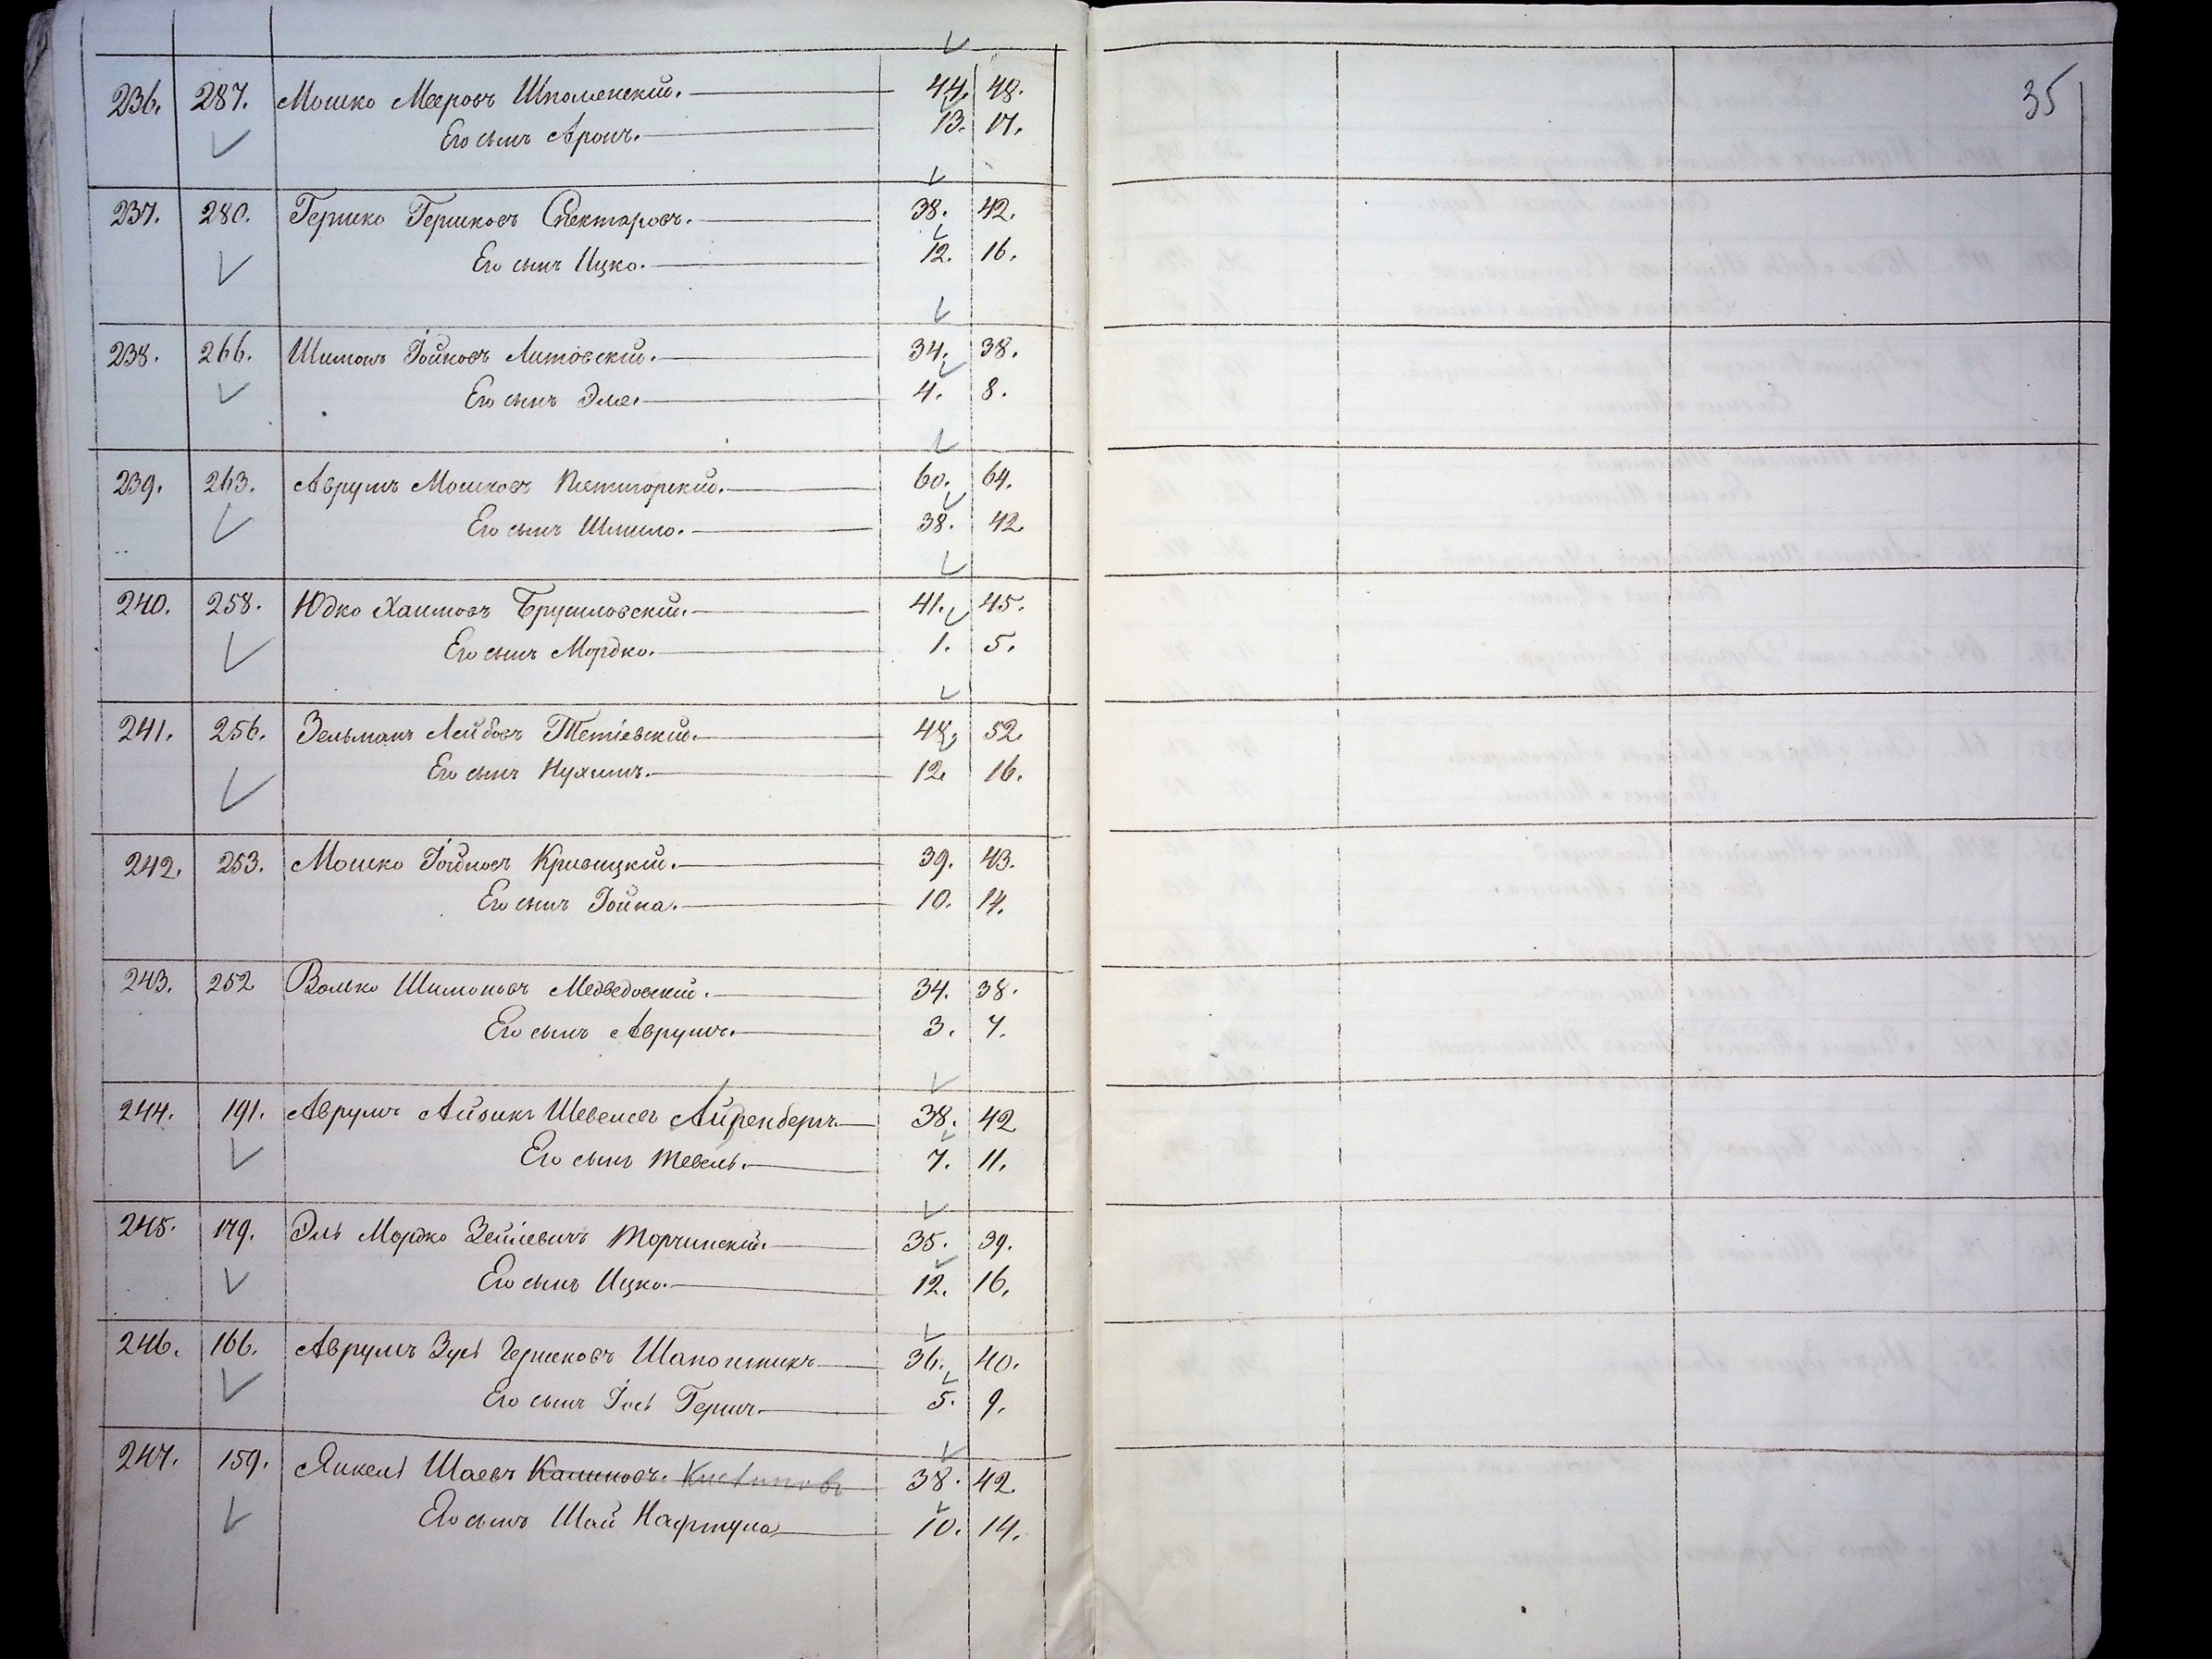 35
236. 287. Мошко Мееровъ Шполенский. 44. 48.
Его сынъ Аронъ. 13. 17.
237. 280. Гершко Гершковъ Спектаровъ. 38. 42.
Его сынъ Ицко. 12. 16.
238. 266. Шимонъ Іойновъ Литовскій. 34. 38.
Его сынъ Элье. 4. 8.
239. 263. Аврумъ Мошковъ Пятигорский. 60. 64.
Его сынъ Шмило. 38. 42
240. 258. Юдко Хаимовъ Брусиловский. 41. 45.
Его сынъ Мордко. 1. 5.
241. 256. Зельманъ Лейбовъ Тетіевский. 48. 52.
Его сынъ Нухимъ. 12. 16.
242. 253. Мошко Іойновъ Кривицкій. 39. 43.
Его сынъ Іойна. 10. 14.
243. 252 Волько Шимоновъ Медведовский. 34. 38.
Его сынъ Аврумъ. 3. 7.
244. 191. Аврумъ Айзикъ Шевелевъ Айренберъ. 38. 42
Его сынъ Шевель. 7. 11.
245. 179. Эль Мордко Зейлевичъ Торчинский. 35. 39.
Его сынъ Ицко. 12. 16.
246. 166. Аврумъ Зусь Гершковъ Шапошникъ 36. 40.
Его сынъ Іось Гершъ. 5. 9.
247. 159. Янкель Шаевъ 38. 42.
Его сынъ Шай Нафтула 10. 14.